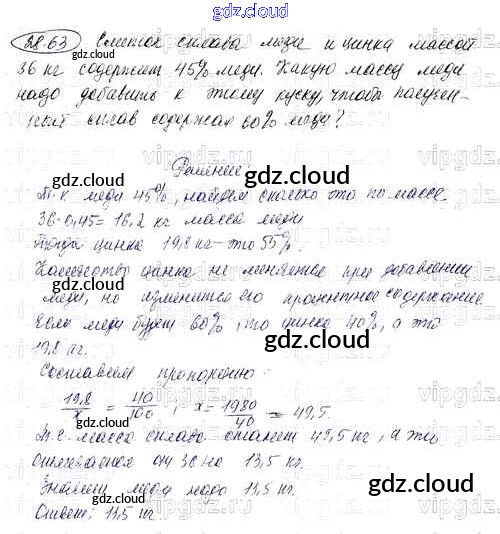 gdz.cloud
38.63 Слиток сплава меди и цинка массой
36 кг содержит 45% меди. Какую массу меди
надо добавить к этому куску, чтобы получен-
ный сплав содержал 60% меди?
gdz.cloud
Решение
gdz.cloud
Т.к меди 45%, найдем сколько это по массе
36·0,45=16,2 кг масса меди
Тогда цинка 19,8 кг-это 55%.
Количество цинка не меняется при добавлении
меди, но изменится его процентное содержание
Если меди будет 60%, то цинка 40%, а это
19,8 кг.
gdz.cloud
Составим пропорцию:
19,8/x = 40/100 ; x = 1980/40 = 49,5.
Т.е. масса сплава станет 49,5 кг, а это
отличается от 36 на 13,5 кг.
Значит меди надо 13,5 кг.
gdz.cloud
Ответ: 13,5 кг
gdz.cloud